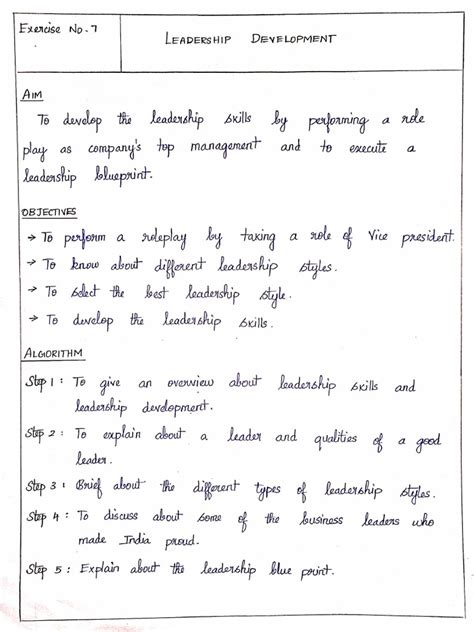 Exercise No.7
LEADERSHIP DEVELOPMENT
AIM
To develop the leadership skills by performing a role
play as company's top management and to execute a
leadership blueprint.
OBJECTIVES
→ To perform a roleplay by taking a role of Vice president.
→ To know about different leadership styles.
→ To select the best leadership style.
→ To develop the leadership skills.
ALGORITHM
Step 1 : To give an overview about leadership skills and
leadership development.
Step 2 : To explain about a leader and qualities of a good
leader.
Step 3 : Brief about the different types of leadership styles.
Step 4 : To discuss about some of the business leaders who
made India proud.
Step 5 : Explain about the leadership blue point.